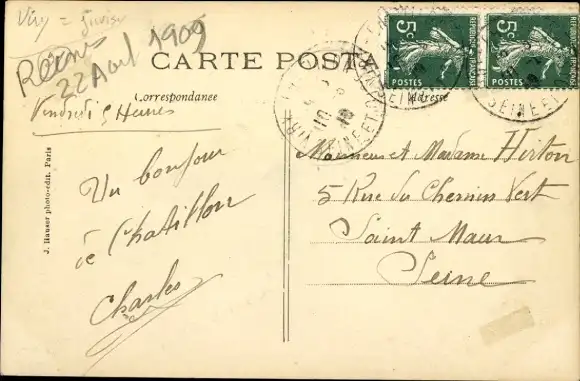 Viry =
22 Aout 1909
CARTE POSTALE
Correspondance
Adresse
Vendredi 5 Heures
5c 5c
REPUBLIQUE FRANÇAISE
POSTES POSTES
SEINE ET
Un bonjour
de Chatillon
Charles
Monsieur et Madame Hirton
5 Rue du Chemin Vert
Saint Maur
Seine
J. Hauser photo-édit. Paris